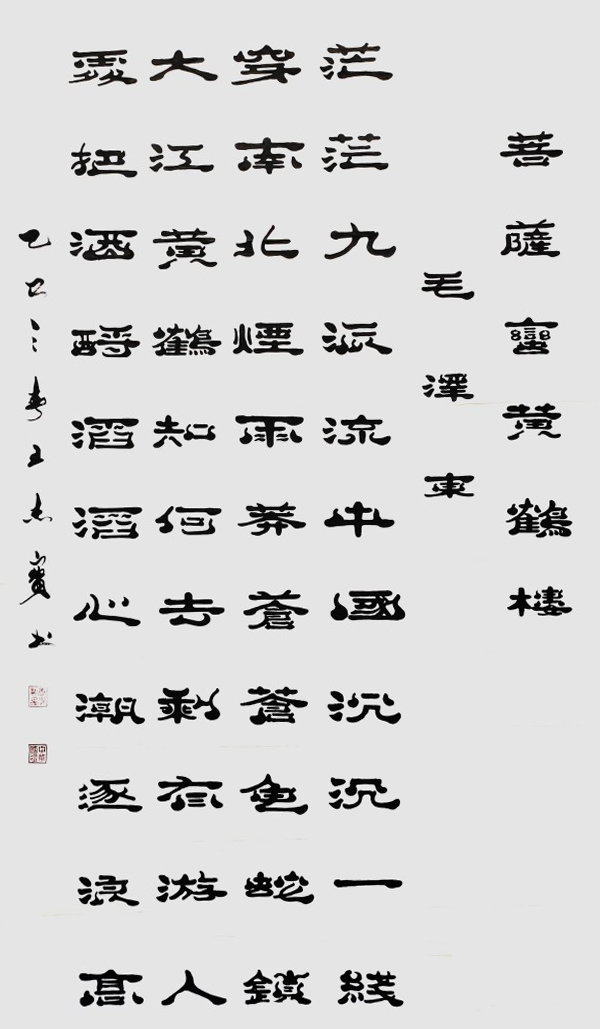 菩薩蠻黄鶴樓
毛澤東
茫茫九派流中國沉沉一綫
穿南北煙雨莽蒼蒼龟蛇鎖
大江黄鶴知何去剩有游人
處把酒酹滔滔心潮逐浪高
乙巳之春王書